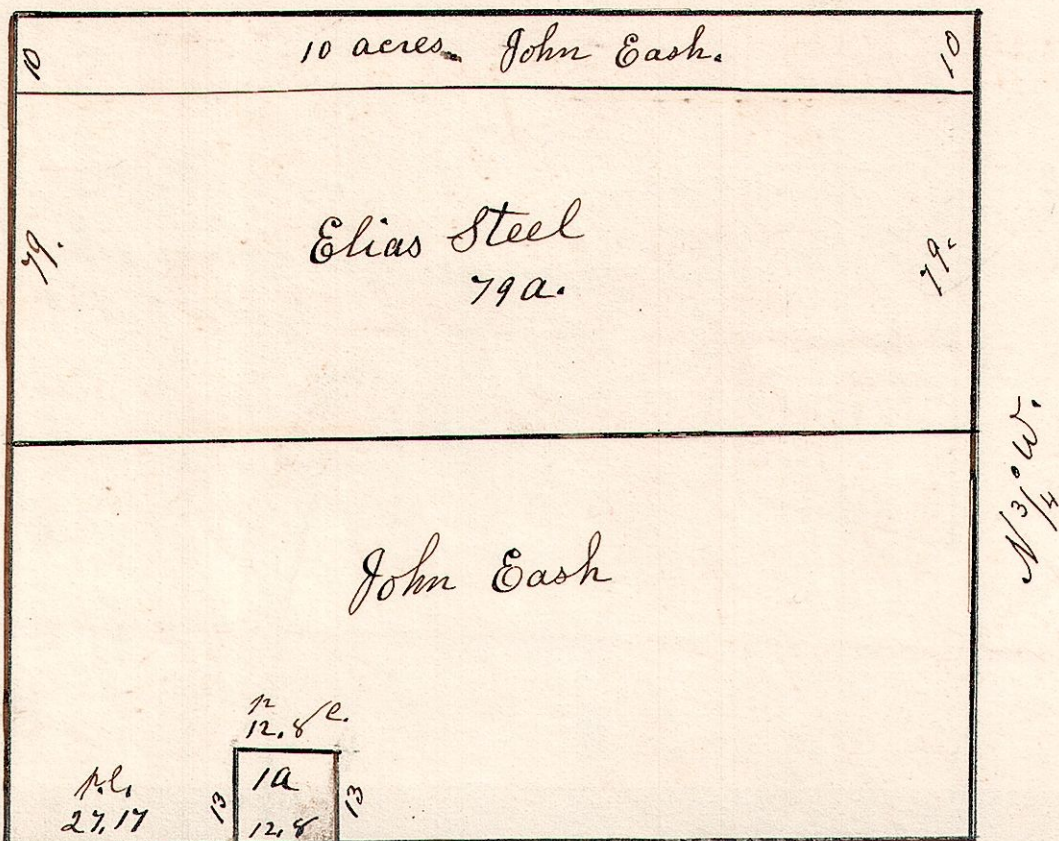 10 10 acres John Eash. 10
Elias Steel
79. 79a. 79.
N 3/4° W.
John Eash
p
12.8 l.
p.l. 1a
27,17 13 12.8 13